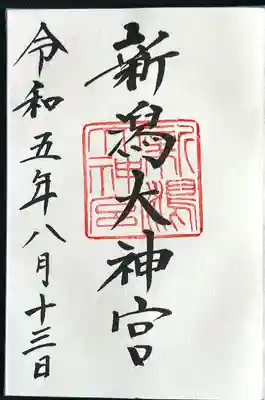 新潟大神宮
令和五年八月十三日
新潟大神宮